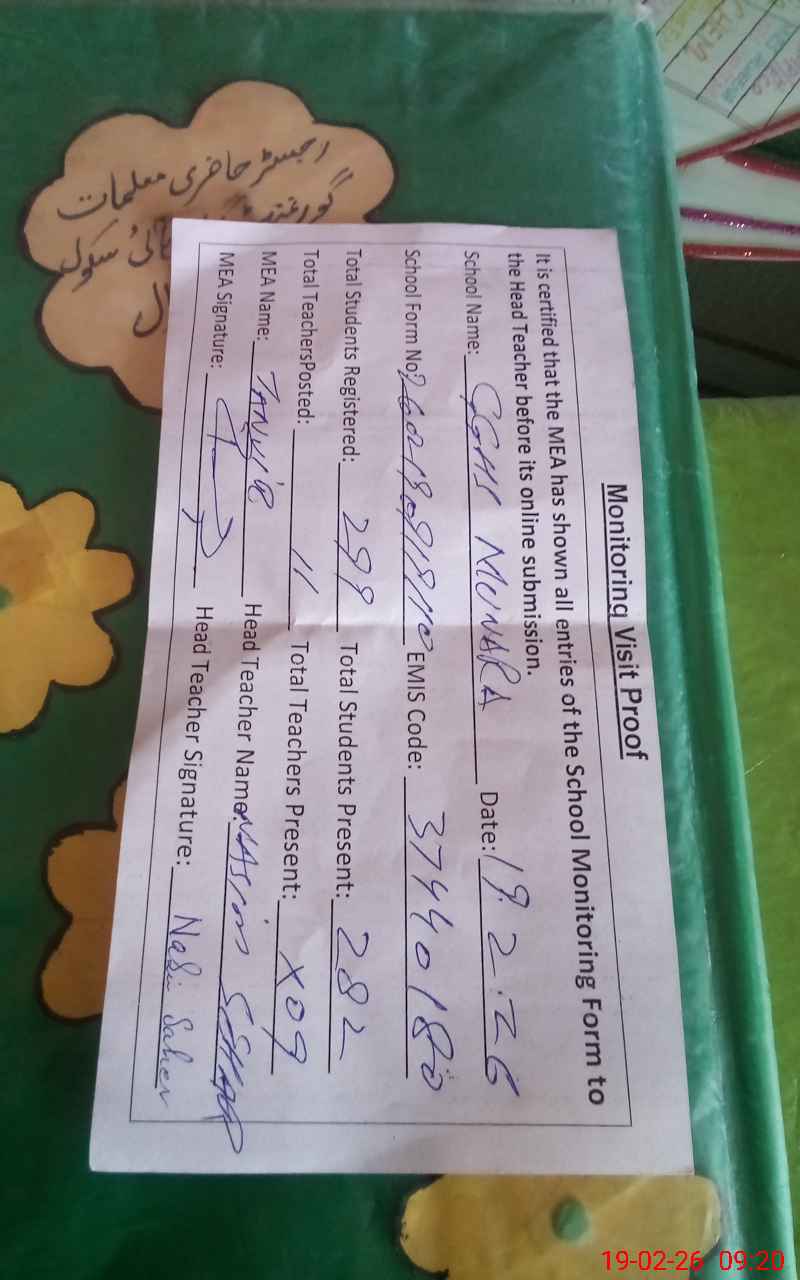 Monitoring Visit Proof
It is certified that the MEA has shown all entries of the School Monitoring Form to
the Head Teacher before its online submission.
School Name: GGHS MUNARA Date: 19.2.26
School Form No: EMIS Code: 37440180
Total Students Registered: 299 Total Students Present: 282
Total TeachersPosted: 11 Total Teachers Present: X09
MEA Name: Head Teacher Name: NASIM SEHAR
MEA Signature: Head Teacher Signature: Saher
رجسٹر حاضری معلمات
گورنمنٹ
سکول
CHEM
19-02-26 09:20